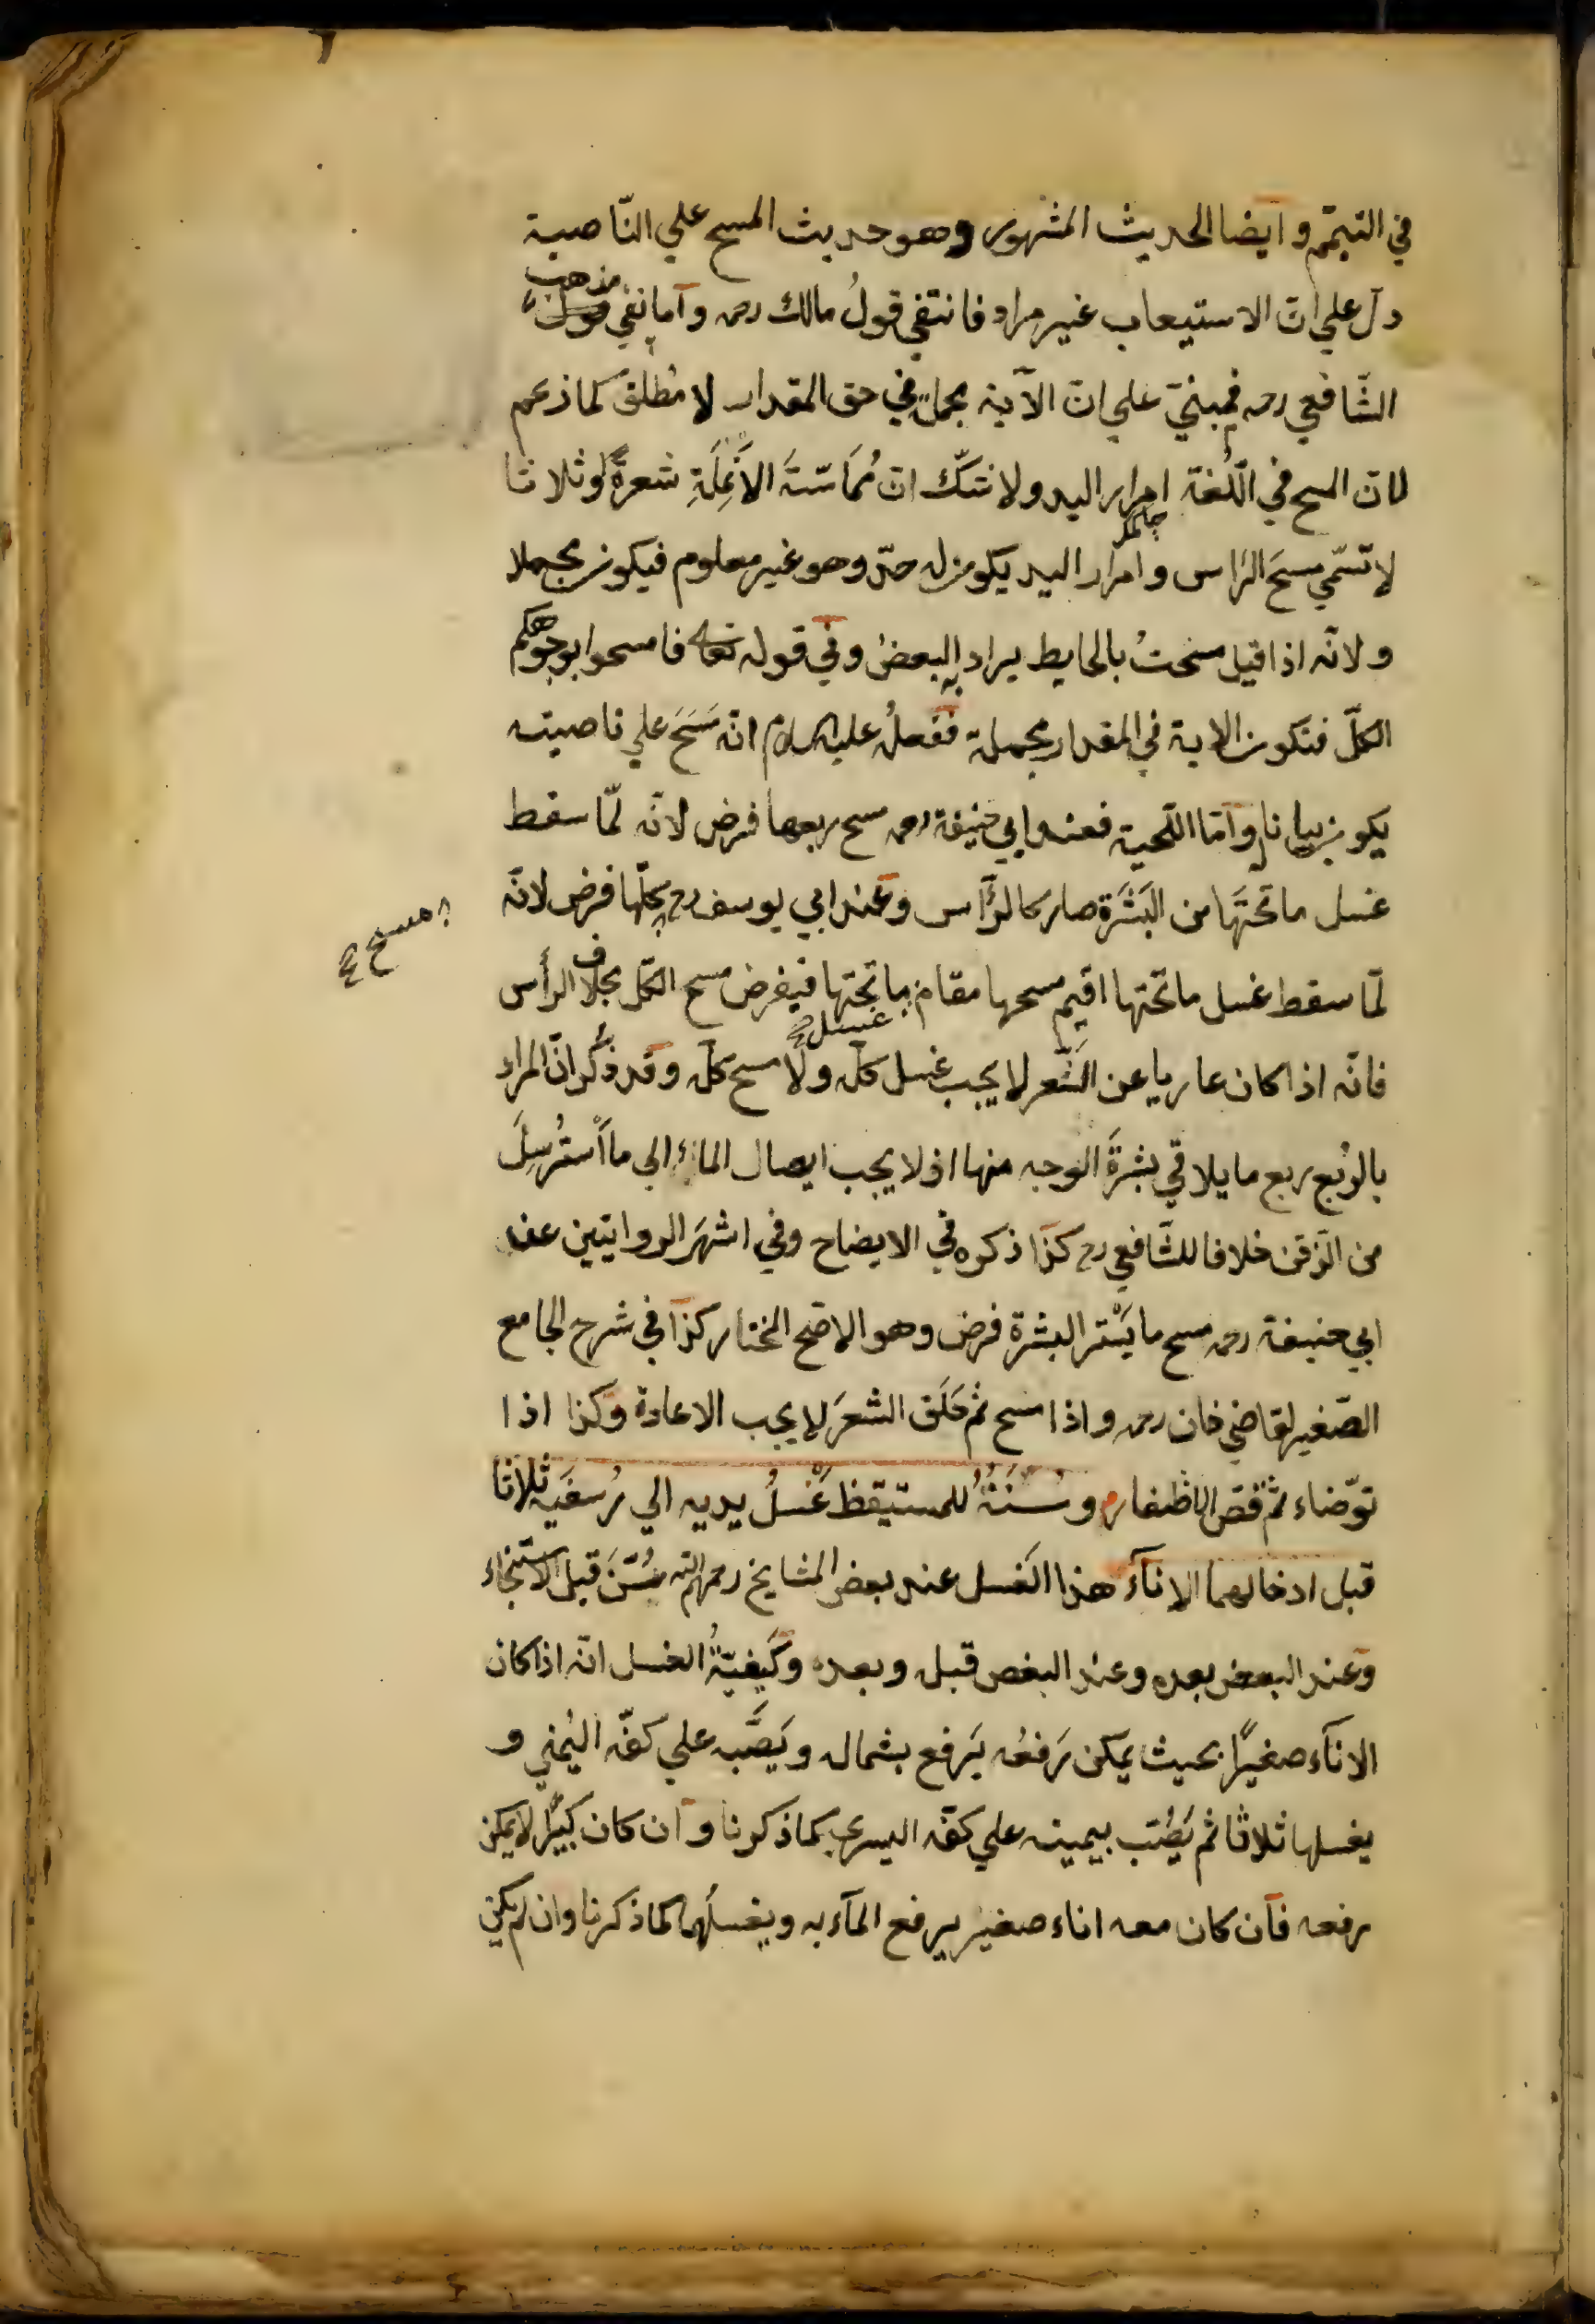 في التيمّم وايضا الحديث المشهور وهو حديث المسح علي النّاصية
دلّ علي انّ الاستيعاب غير مراد فانتفي قولُ مالك رحمه وآما نفي مذهب
الشّافعي رحمه فمبنيّ علي انّ الآية مجملة في حق المقدار لا مُطلَق كما زعم
لانّ المسح في اللّغة امرار اليد ولا شكّ انّ مُمَاسّةَ الاَنْمِلَةِ شعرةً او ثلاثا
لا تسّمي مسحَ الرّاس وامرار اليد يكون له حدّ وهو غير معلوم فيكون مجملا
ولانّه اذا قيل مسحتُ بالحايط يراد به البعضُ وفي قوله تعالى فامسحوا بوجوهكم
الكلّ فتكون الاية في المقدار مجملة ففعلُه عليه السلام انّه مَسَحَ علي ناصيته
يكون بيانا وآمّا اللّحية فعند ابي حنيفة رحمه مسح ربعها فرض لانّه لمّا سقط
غسل ما تحتَها من البَشَرَة صار كالرّأس وعند ابي يوسف رح كلّها فرض لانّه
مسح
لمّا سقط غسل ما تحتها اقيم مسحها مقام غسل ما تحتها فيفرض مسح الكلّ بخلاف الرأس
فانّه اذا كان عاريا عن الشَّعر لا يجب غسل كلّه ولا مسح كلّه وقد ذُكر انّ المراد
بالرُبع ربع ما يلاقي بشرةَ الوجه منها اذ لا يجب ايصال الماء الي ما اُسْتُرسِلَ
من الذقن خلافا للشّافعي رح كذا ذكره في الايضاح وفي اشهَر الروايتين عن
ابي حنيفة رحمه مسح ما يَسْتر البشرة فرض وهو الاصّح المختار كذا في شرح الجامع
الصّغير لقاضي خان رحمه واذا مسح ثم حَلَق الشعرَ لا يجب الاعادة وكذا اذا
توّضاء ثمّ قصّ الاظفار م وسُنَتُهُ للمستيقظ غَسْلُ يديه الي رُسغَيه ثلاثا
قبل ادخالهما الاناءَ هذا الغَسل عند بعض المشايخ رحمهم الله سُنّ قبل الاستنجاء
وعند البعض بعده وعند البعض قبل وبعده وكَيفيّةُ الغسل انّه اذا كان
الاناء صغيرًا بحيث يمكن رَفعُه يَرفع بشماله ويَصُّبه علي كفّه اليُمني و
يغسلها ثلاثا ثم يَصُّب بيمينه علي كفّه اليسري كما ذكرنا وان كان كبيرًا لا يمكن
رفعه فآن كان معه اناء صغير يرفع المآء به ويغسلُهما كما ذكرنا وان لم يكن